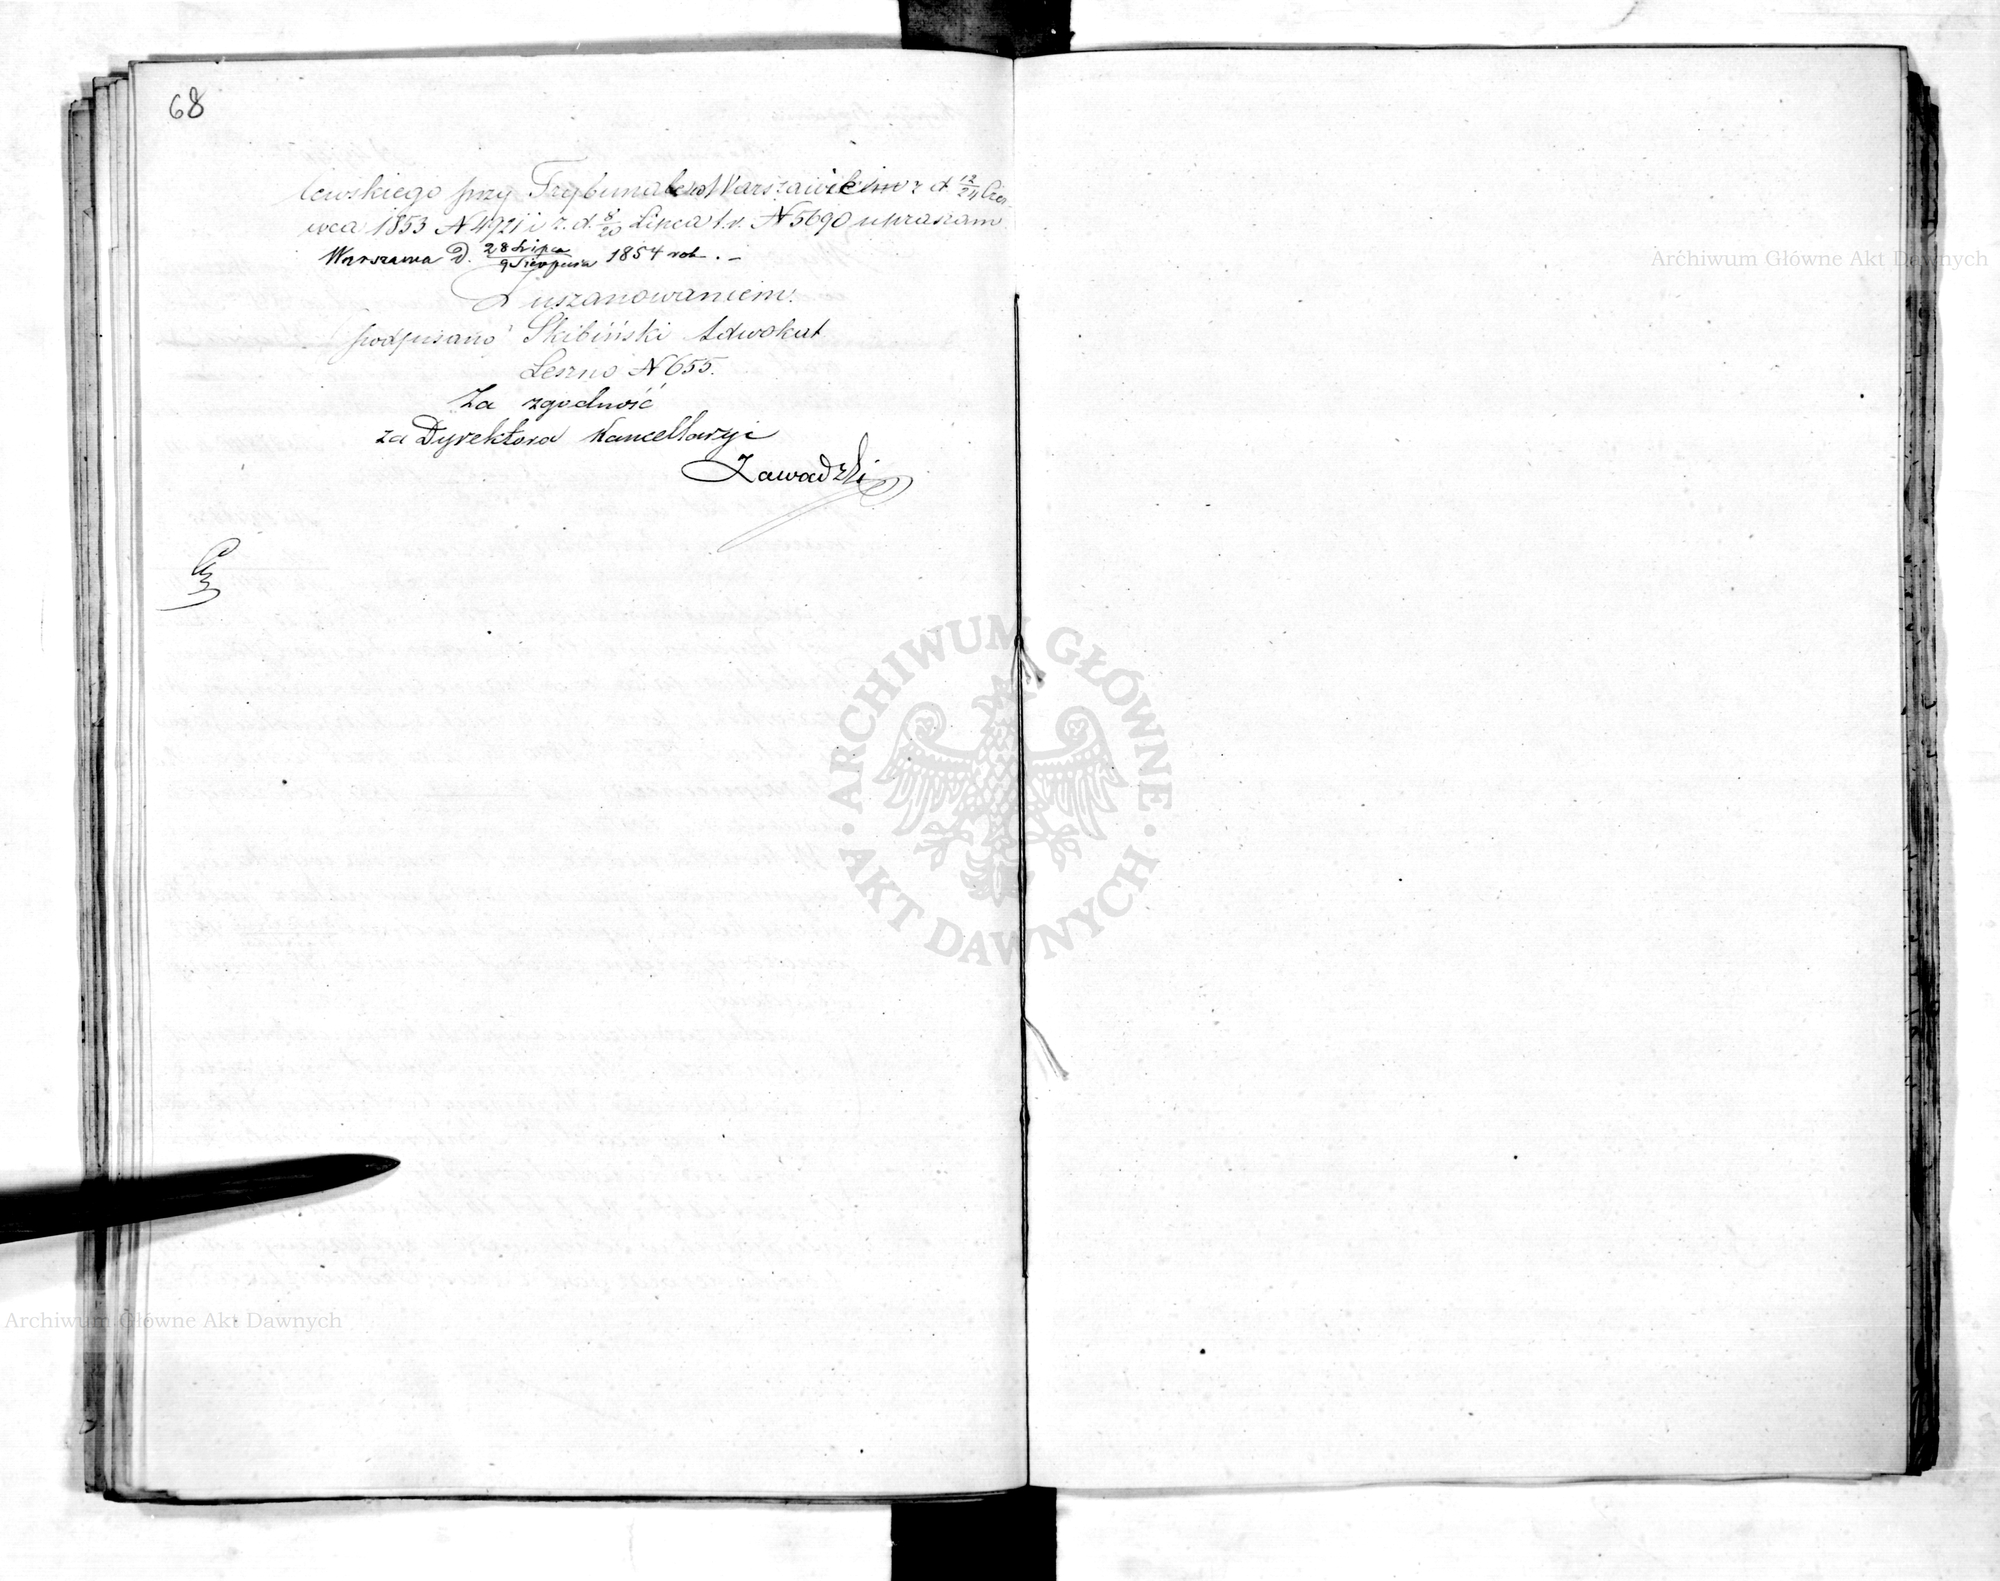 68
lewskiego przy Trybunale w Warszawskim z d 12/24 Czer-
wca 1853 N 4921 i z. d. 8/20 Lipca t.r. N 5690 upraszam
Warszawa D. 28 Lipca/9 Sierpnia 1854 rok. –
Z uszanowaniem
podpisano Skibiński Adwokat
Leszno N 655.
Za zgodność
za Dyrektora Kancellaryi
Zawadzki
Archiwum Główne Akt Dawnych
ARCHIWUM GŁÓWNE
AKT DAWNYCH
Archiwum Główne Akt Dawnych